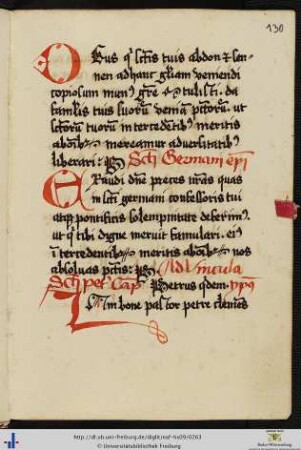 130
Deus q̇ sctis tuis abdon & sen-
nen ad hanc gl̄iam veniendi
copiosum mun⁹ gr̄e tulisti. da
famul̄is tuis suoru veniā pctoru. ut
sctoru tuoru intercedētib⁹ meritis
ab oīb⁹ mereamur adversitatib⁹
liberari: p Scī Germani ep̄i
Exaudi dn̄e preces nr̄as quas
in scī germani confessoris tui
atq̄ pontificis solempnitate deferim⁹.
ut q̇ tibi digne meruit famulari. ei⁹
ītercedentib⁹ meritis ab oīb⁹ nos
absolvas pctis: p Ad vincula
Scī pet Cap Petrus qdem. ymp⁹
Iam bone pastor petre clemēs
http://dl.ub.uni-freiburg.de/diglit/nsf-hs09/0263
© Universitätsbibliothek Freiburg
Baden-Württemberg